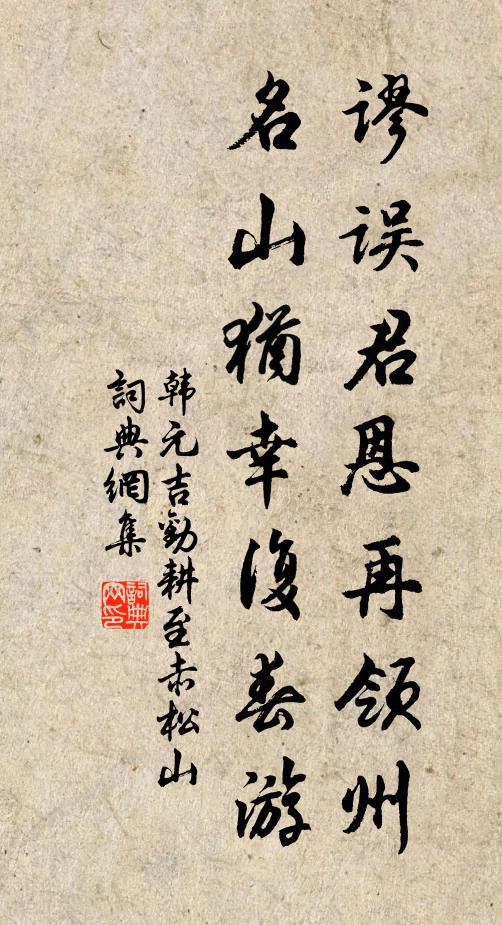 谬误君恩再领州
名山犹幸复春游
韩元吉劝耕至赤松山
詞典網集
詞典网印